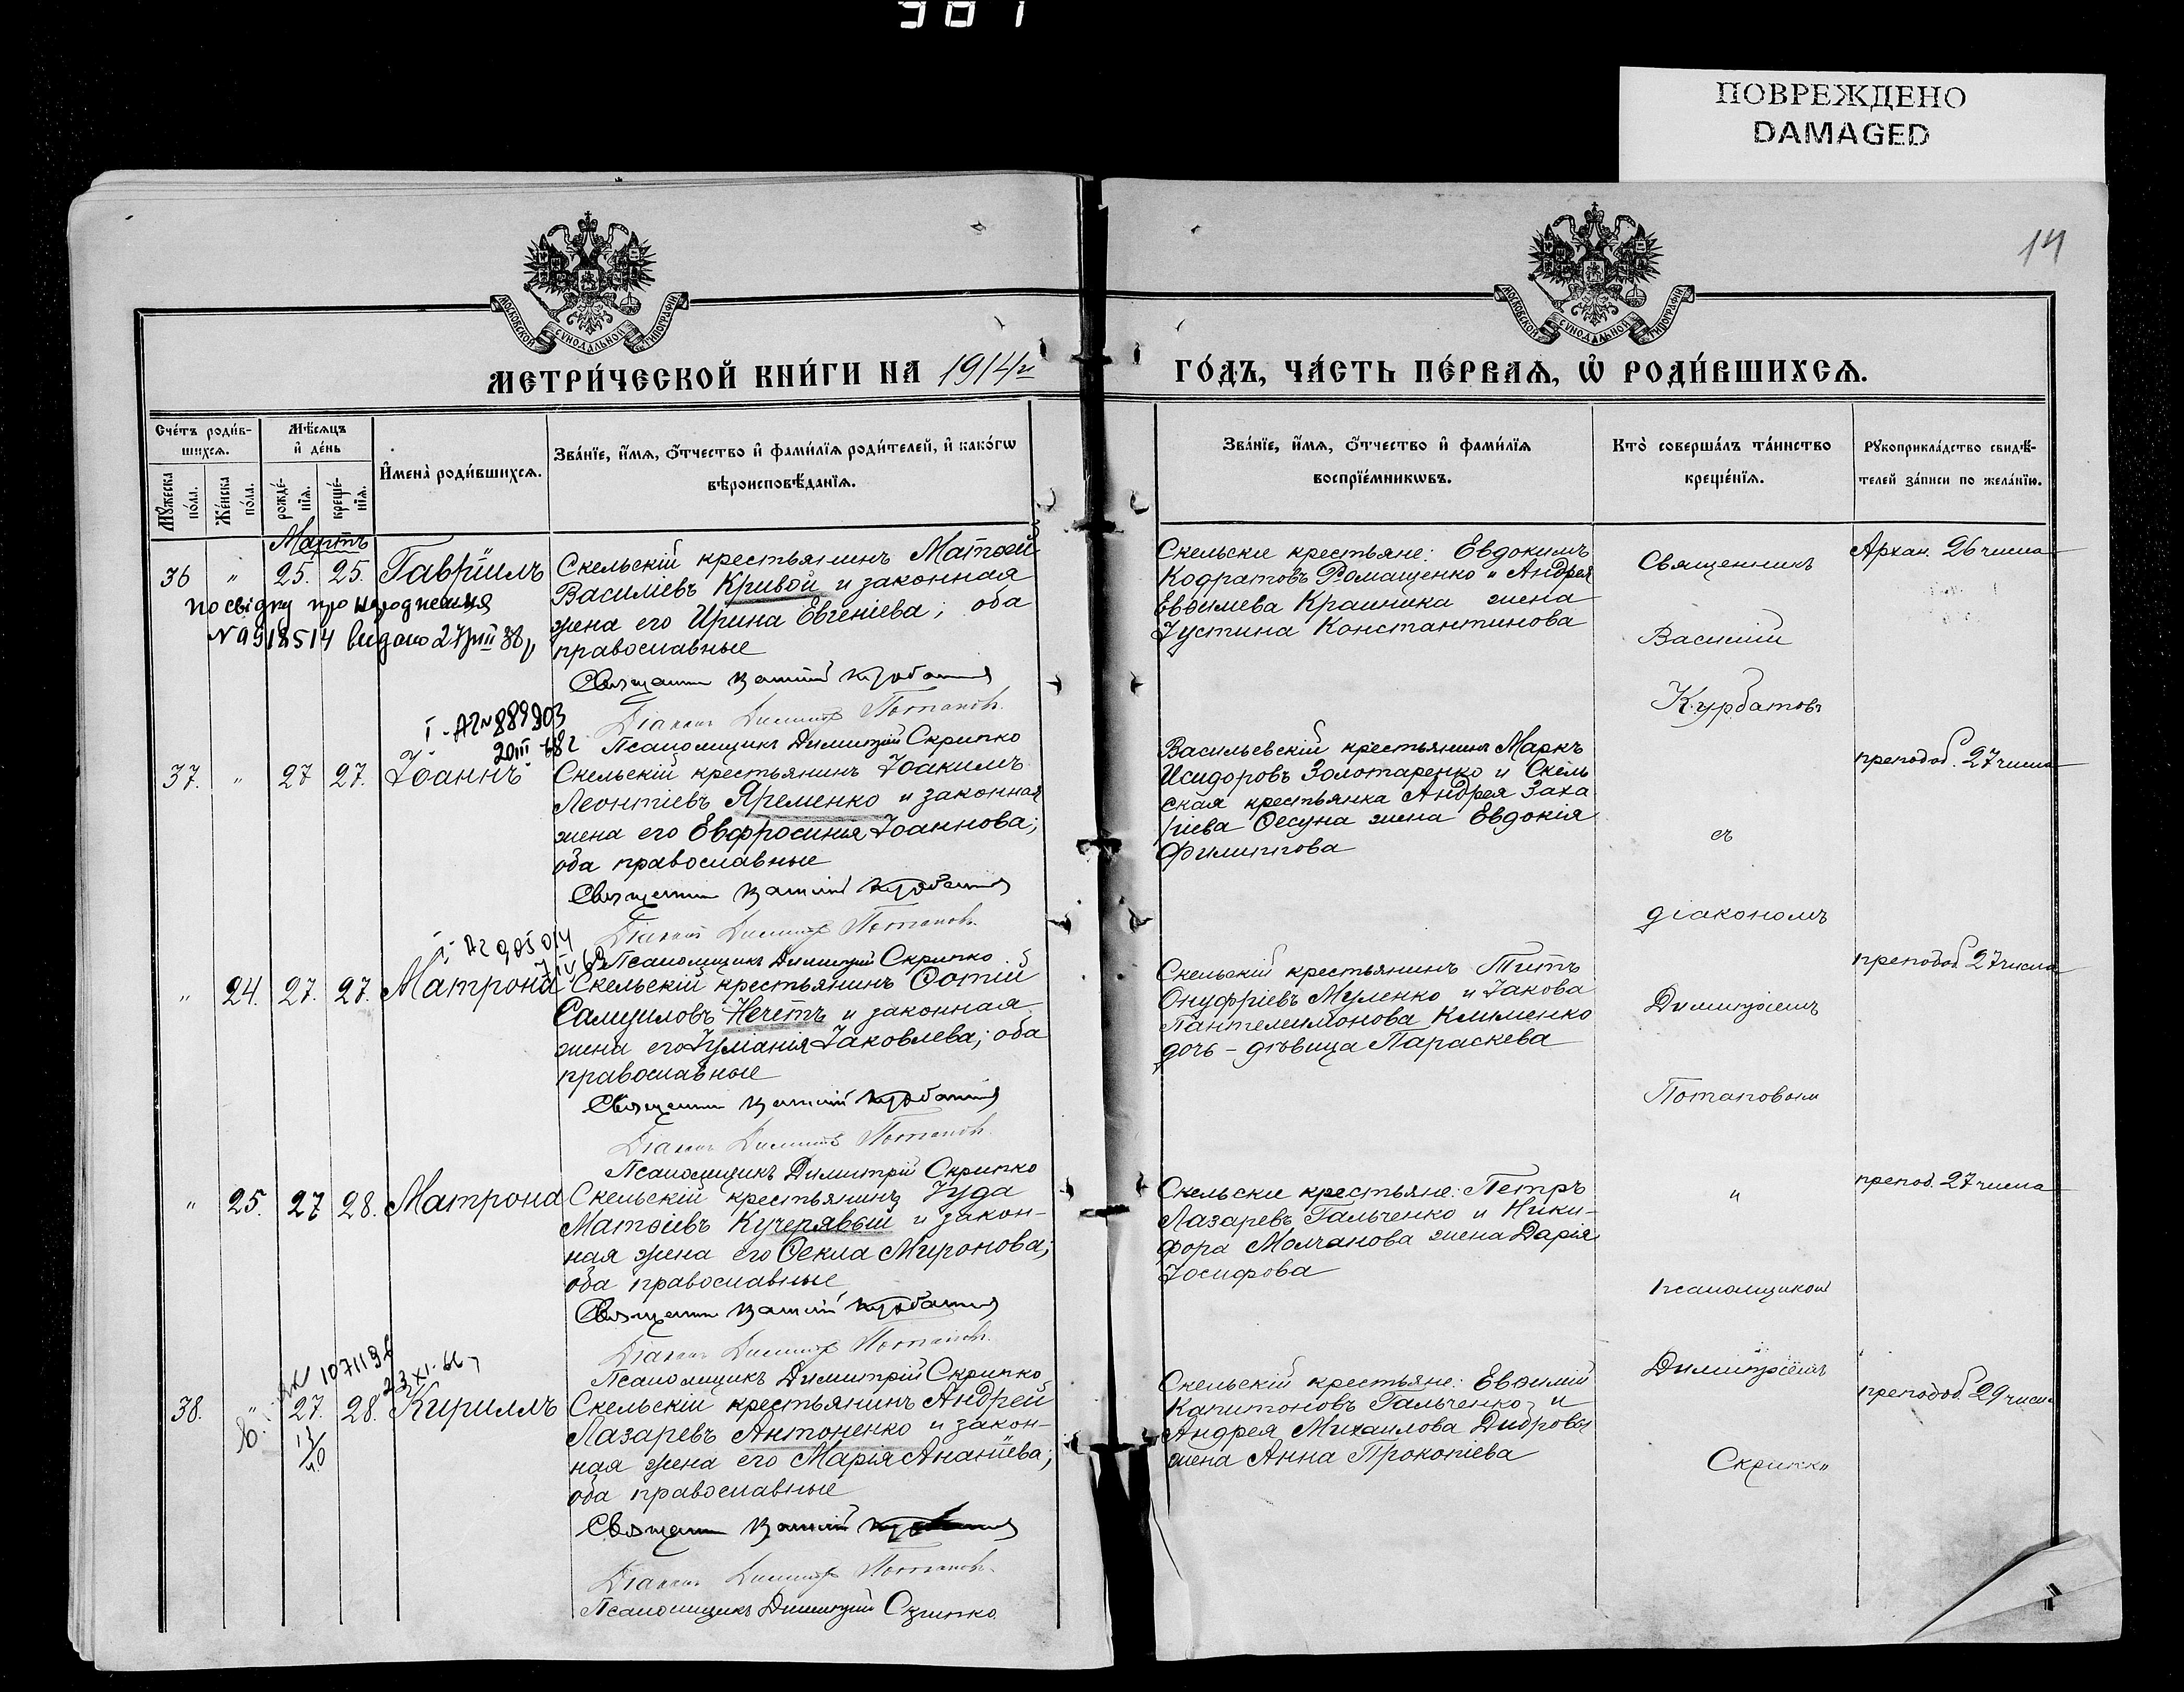 ПОВРЕЖДЕНО
DAMAGED
14
МОСКОВСКОЙ СѴНОДАЛЬНОЙ ТИПОГРАФІИ
МОСКОВСКОЙ СѴНОДАЛЬНОЙ ТИПОГРАФІИ
МЕТРИ́ЧЕСКОЙ КНИ́ГИ НА 1914й
ГО́ДЪ, ЧА́СТЬ ПЕ́РВАѦ, Ѡ҆ РОДИ́ВШИХСѦ.
Сче́тъ роди́в-
шихсѧ.
Мѣ́сѧцъ
и҆ де́нь
Мꙋжеска
по́ла.
Же́нска
по́ла.
рожде́-
нїѧ.
креще́-
нїѧ.
И҆мена̀ роди́вшихсѧ.
Зва́нїе, и҆́мѧ, ѻ҆́тчество и҆ фами́лїѧ роди́телей, и҆ како́гѡ
вѣроисповѣ́данїѧ.
Зва́нїе, и҆́мѧ, ѻ҆́тчество и҆ фами́лїѧ
воспрїе́мникѡвъ.
Кто̀ соверша́лъ та́инство
креще́нїѧ.
Рꙋкоприкла́дство свидѣ́-
телей за́писи по жела́нїю.
Мартъ
36 " 25. 25. Гавріилъ
по свідку про народження
N 0918514 видано
Скельскій крестьянинъ Матѳей
Василіевъ Кривой и законная
жена его Ирина Евгеніева; оба
православные
Священникъ Василій Курбатовъ
Діаконъ Димитрій Потаповъ
Псаломщикъ Димитрій Скрипко
Скельскіе крестьяне: Евдокимъ
Кодратовъ Ромащенко и Андрея
Евѳимева Краиника жена
Іустина Константинова
Священникъ
Василій
Курбатовъ
Архан. 26 числа
37. " 27 27. Іоаннъ
Скельскій крестьянинъ Іоакимъ
Леонтіевъ Яременко и законная
жена его Евфросинія Іоаннова;
оба православные
Священникъ Василій Курбатовъ
Діаконъ Димитрій Потаповъ
Псаломщикъ Димитрій Скрипко
Васильевскій крестьянинъ Маркъ
Исидоровъ Золотаренко и Скель
ская крестьянка Андрея Заха
ріева Ѳесуна жена Евдокія
Филиппова
съ
діакономъ
преподоб. 27 числа
" 24. 27. 27. Матрона
Скельскій крестьянинъ Ѳотій
Самуиловъ Нечетъ и законная
жена его Іуліанія Іаковлева; оба
православные
Священникъ Василій Курбатовъ
Діаконъ Димитрій Потаповъ
Псаломщикъ Димитрій Скрипко
Скельскій крестьянинъ Титъ
Онуфріевъ Муленко и Іакова
Пантелеимонова Клименко
дочь - дѣвица Параскева
Димитріемъ
Потаповым
преподоб. 27 числа
" 25. 27 28. Матрона
Скельскій крестьянинъ Іуда
Матѳіевъ Кучерявый и закон-
ная жена его Ѳекла Миронова;
оба православные
Священникъ Василій Курбатовъ
Діаконъ Димитрій Потаповъ
Псаломщикъ Димитрій Скрипко
Скельскіе крестьяне: Петръ
Лазаревъ Гальченко и Ники-
фора Молчанова жена Дарія
Іосифова
и
псаломщиком
препод. 27 числа
38. " 27. 28. Кириллъ
Скельскій крестьянинъ Андрей
Лазаревъ Антоненко и закон-
ная жена его Марія Ананіева;
оба православные
Священникъ Василій Курбатовъ
Діаконъ Димитрій Потаповъ
Псаломщикъ Димитрій Скрипко
Скельскій крестьяне: Евѳимій
Капитоновъ Гальченко и
Андрея Михаилова Дибровы
жена Анна Прокопіева
Димитріемъ
Скрипко
преподоб. 29 числа